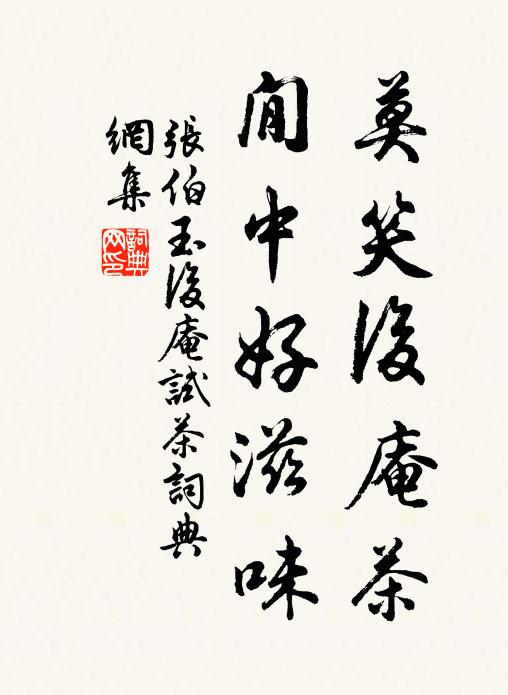 莫笑後庵茶
閒中好滋味
張伯玉後庵試茶詞典
網集
詞典網印